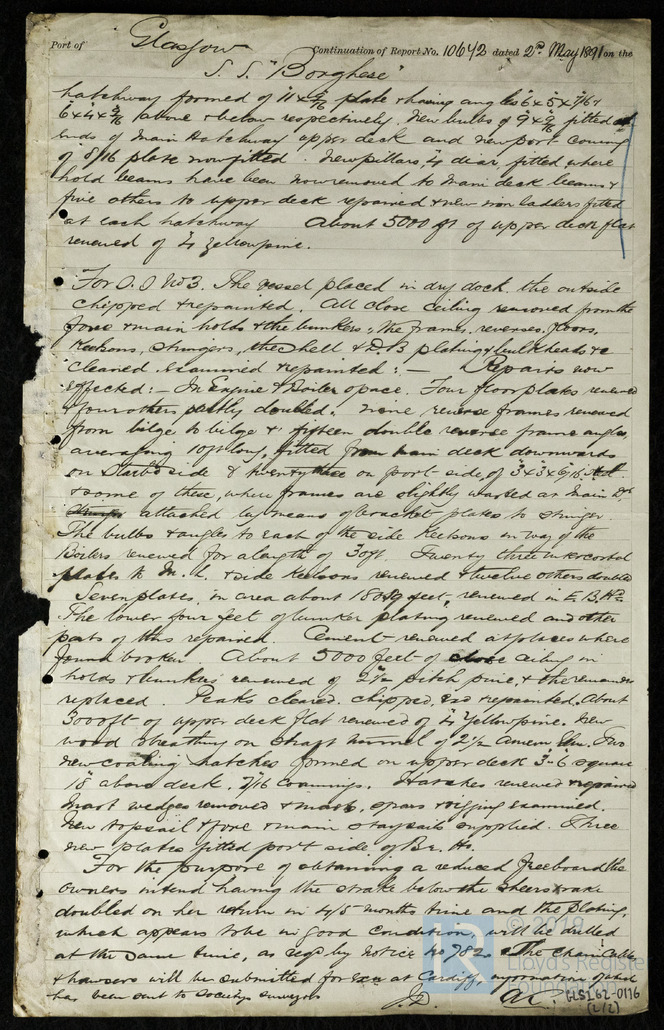 Port of Glasgow Continuation of Report No. 10642 dated 2nd May 1891 on the
S. S. "Borghese"
hatchway formed of 11 x 9/16 plate & having angles 6 x 5 x 7/16 &
6 x 4 x 9/16 above & below respectively. New bulbs of 9 x 9/16 fitted at
ends of Main Hatchway upper deck and new port coaming
of 8/16 plate now fitted. New pillars, 4 dear, fitted where
hold beams have been now removed to main deck beams &
five others to upper deck repaired & new iron ladders fitted
at each hatchway About 5000 ft of upper deck flat
renewed of 4 yellow pine.
For S. S No 3. The vessel placed in dry dock the outside
chipped & repainted. All close ceiling removed from the
fore & main holds & the bunkers; the frames, reverses, floors,
keelsons, stringers, the shell & D. B plating & bulkheads &c
cleaned examined & repainted: — Repairs now
effected: — In Engine & Boiler space. Four floor plates renewed
& four others partly doubled. nine reverse frames renewed
from bilge to bilge & fifteen double reverse frame angles,
averaging 10 ft long, fitted from main deck downwards
on Starbd side & twenty three on port side, of 3 x 3 x 6/16
& some of these, where frames are slightly wasted at Main Dk
attached by means of bracket plates to stringer.
The bulbs & angles to each of the side Keelsons in way of the
Boilers renewed for a length of 30 ft. Twenty three intercostal
plates to M. L. & side keelsons renewed & twelve others doubled
Seven plates, in area about 180 sq feet, renewed in E. B. Hd
The lower four feet of bunker plating renewed and other
parts of this repaired. Cement renewed at places where
found broken About 5000 feet of close ceiling in
holds & bunkers renewed of 2 1/2 pitch pine, & the remainder
replaced. Peaks cleared, chipped, exd & repainted. About
3000 ft of upper deck flat renewed of 4 Yellow pine. New
wood sheathing on shaft tunnel of 2 1/2 Amern Elm. Two
new coaling hatches formed on upper deck 3-6 square
18 above deck, 7/16 coamings. Hatches renewed & repaired
Mast wedges removed & masts, spars & rigging examined.
New topsail & fore & main staysails supplied. Three
new plates fitted port side of Br. Ho.
For the purpose of obtaining a reduced freeboard the
owners intend having the strake below the sheerstrake
doubled on her return in 4/5 months time and the plating,
which appears to be in good condition, will be drilled
at the same time, as reqd by notice No 782. The chain Cables
& hawsers will be submitted for Exn at Cardiff,
has been sent to Society's surveyors
J.D.
© 2019
Lloyd's Register
Foundation
GLS162-0176
[2/2]